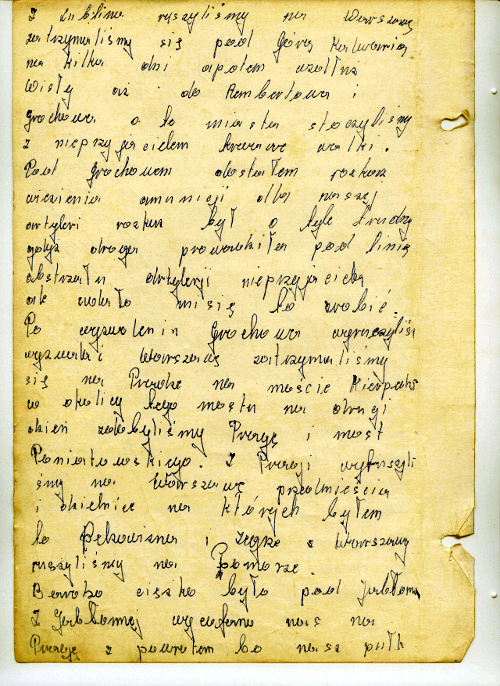 Z Lublina ruszyliśmy na Warszawę
zatrzymaliśmy się pod Górą Kalwarią
na kilka dni a potem wzdłuż
Wisły aż do Rembertowa i
Grochowa o te miasta stoczyliśmy
z nieprzyjacielem krwawe walki.
Pod Grochowem dostałem rozkaz
wiezienia amunicji dla naszej
artyleri rozkaz był o tyle trudny
gdyż droga prowadziła pod linią
obstrzału artyleryji nieprzyjaciela
ale udało misię to zrobić.
Po wyzwoleniu Grochowa wyruszyliśmy
wyzwalać Warszawę zatrzymaliśmy
się na Pradze na moście Kierbedzia
w okolicy tego mostu na drugi
dzień zdobyliśmy Pragę i most
Poniatowskiego. Z Pragi wyruszyli
śmy na Warszawę przedmieścia
i dzielnice na których byłem
to Pekowizna i Zegże z Warszawy
ruszyliśmy na Pomorze.
Bardzo cieszko było pod Jabłonną
Z Jabłonnej wycofano nas na
Pragę z powrotem bo nasz pułk